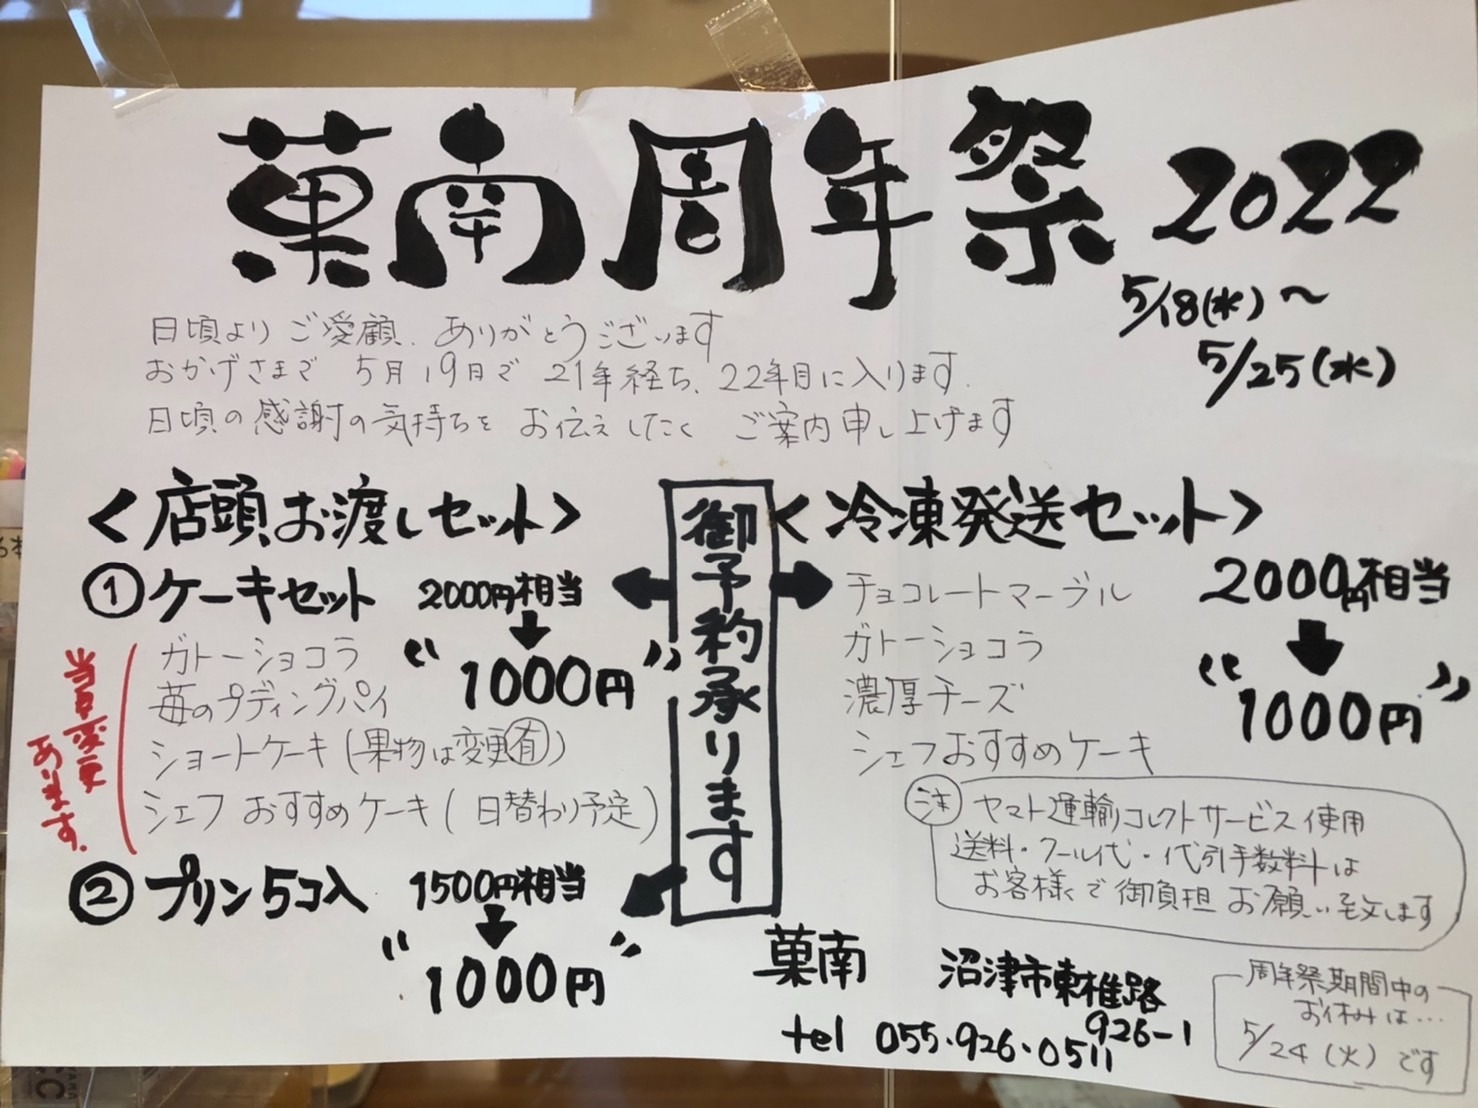 菓南周年祭 2022
5/18(水)〜
5/25(水)
日頃より ご愛顧、ありがとうございます
おかげさまで 5月19日で 21年経ち、22年目に入ります.
日頃の感謝の気持ちを お伝えしたく ご案内申し上げます
<店頭お渡しセット>
①ケーキセット 2000円相当
"1000円"
ガトーショコラ
苺のプディングパイ
ショートケーキ(果物は変更有)
シェフおすすめケーキ(日替わり予定)
変更
あります.
②プリン5コ入 1500円相当
"1000円"
御予約承ります
<冷凍発送セット>
チョコレートマーブル
ガトーショコラ
濃厚チーズ
シェフおすすめケーキ
2000円相当
"1000円"
注 ヤマト運輸コレクトサービス使用
送料・クール代・代引手数料は
お客様で御負担お願い致します
菓南 沼津市東椎路
926-1
tel 055・926・0511
周年祭期間中の
お休みは…
5/24(火)です